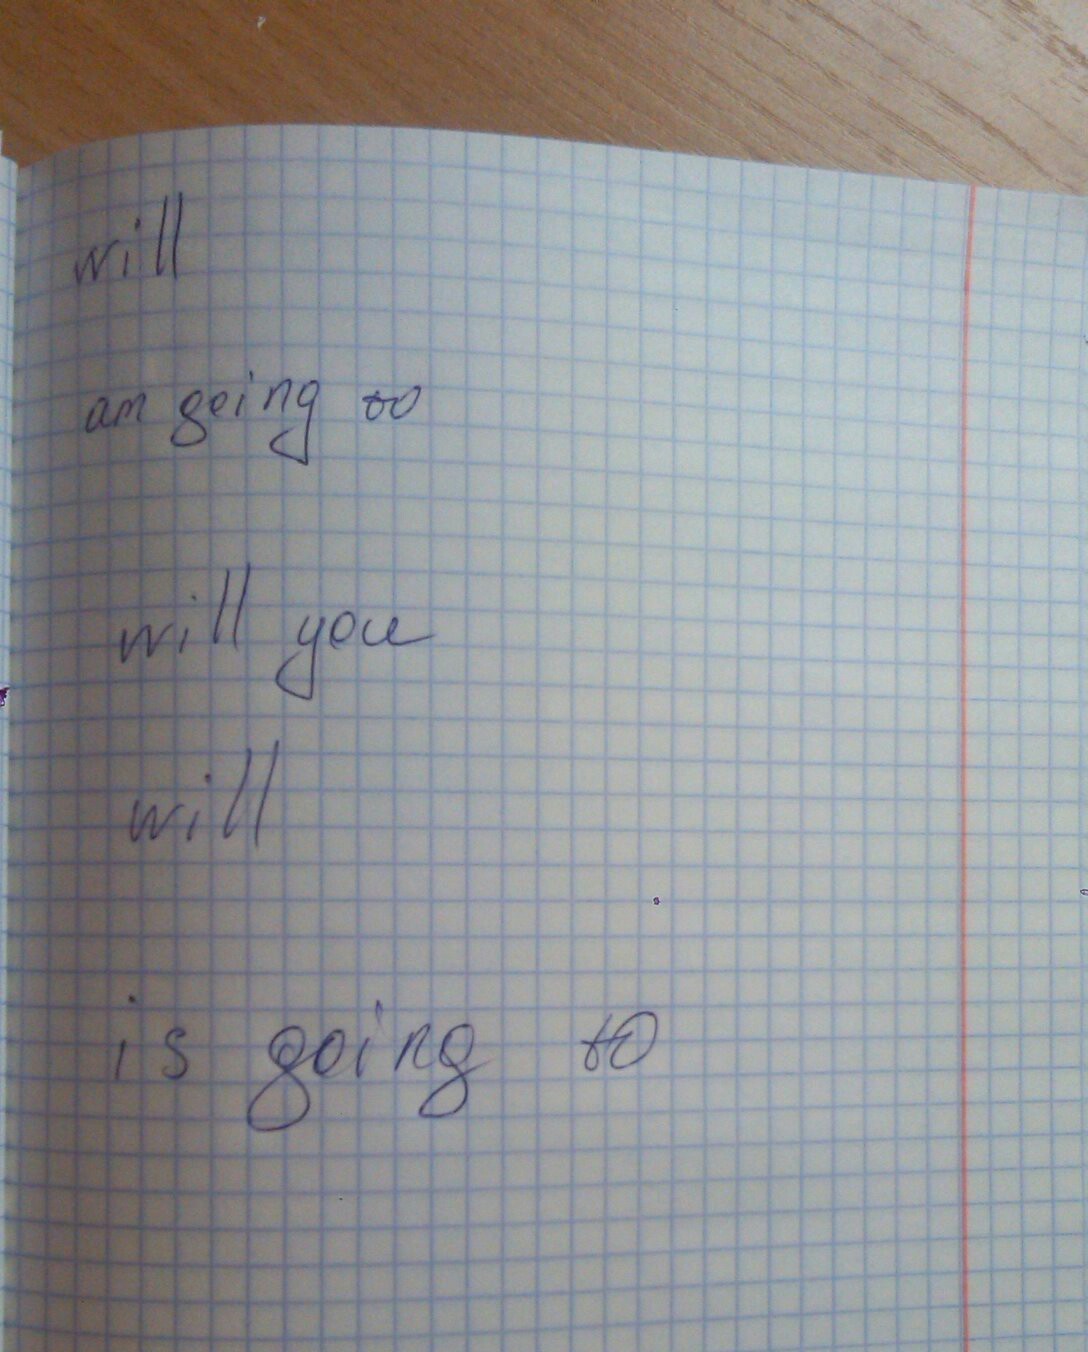 will
am going to
will you
will
is going to